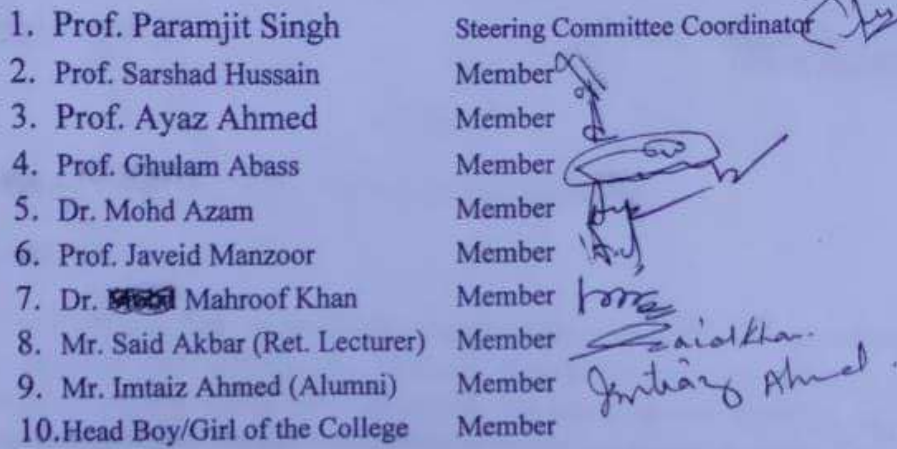 1. Prof. Paramjit Singh Steering Committee Coordinator
2. Prof. Sarshad Hussain Member
3. Prof. Ayaz Ahmed Member
4. Prof. Ghulam Abass Member
5. Dr. Mohd Azam Member
6. Prof. Javeid Manzoor Member
7. Dr. Mahroof Khan Member
8. Mr. Said Akbar (Ret. Lecturer) Member Saidkhan.
9. Mr. Imtaiz Ahmed (Alumni) Member Imtiaz Ahmed
10.Head Boy/Girl of the College Member